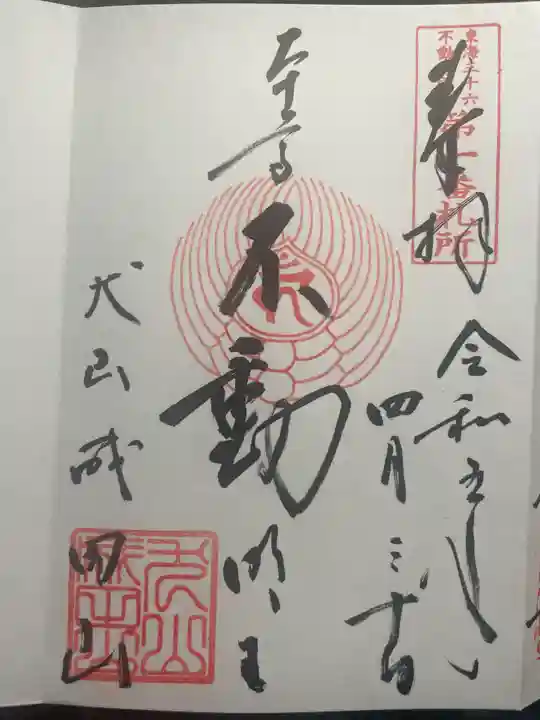 東海三十六
不動
第一番札所
奉拝
令和五年
四月三十日
本尊
不動明王
犬山成田山